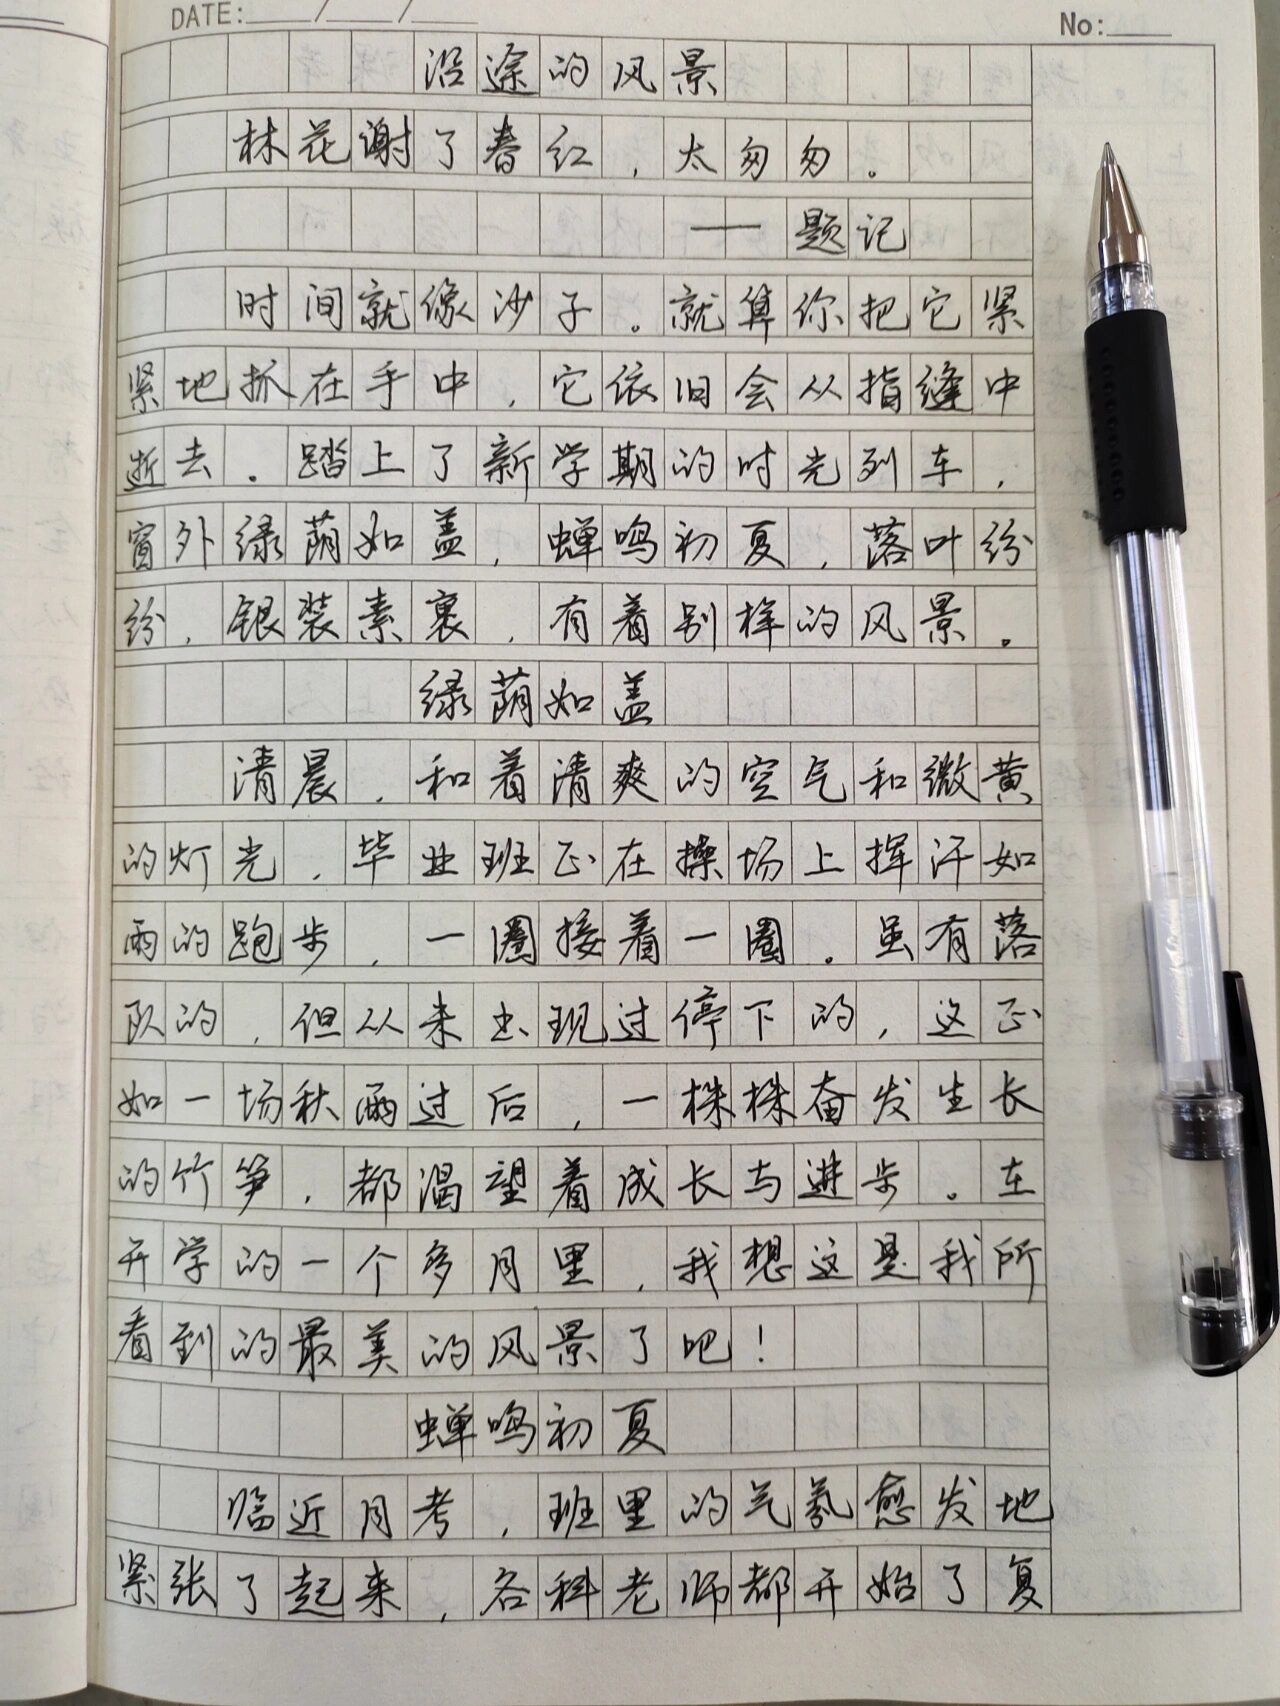 DATE:____/____/____
No:____
沿途的风景
林花谢了春红,太匆匆。
——题记
时间就像沙子。就算你把它紧
紧地抓在手中,它依旧会从指缝中
逝去。踏上了新学期的时光列车,
窗外绿荫如盖,蝉鸣初夏,落叶纷
纷,银装素裹,有着别样的风景。
绿荫如盖
清晨,和着清爽的空气和微黄
的灯光,毕业班正在操场上挥汗如
雨的跑步,一圈接着一圈。虽有落
队的,但从来出现过停下的,这正
如一场秋雨过后,一株株奋发生长
的竹笋,都渴望着成长与进步。在
开学的一个多月里,我想这是我所
看到的最美的风景了吧!
蝉鸣初夏
临近月考,班里的气氛愈发地
紧张了起来,各科老师都开始了复